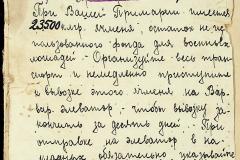 При Вашей Примарии имеется
23500 клгр. ячменя, остаток не ис-
пользованного фонда для военных
лошадей. Организуйте весь тран-
спорт и немедленно приступите
к вывозке этого ячменя на Вар-
вар. элеватор, чтобы вывозку за-
кончить за десять дней. При
отправке на элеватор в на-
обязательно указывайте